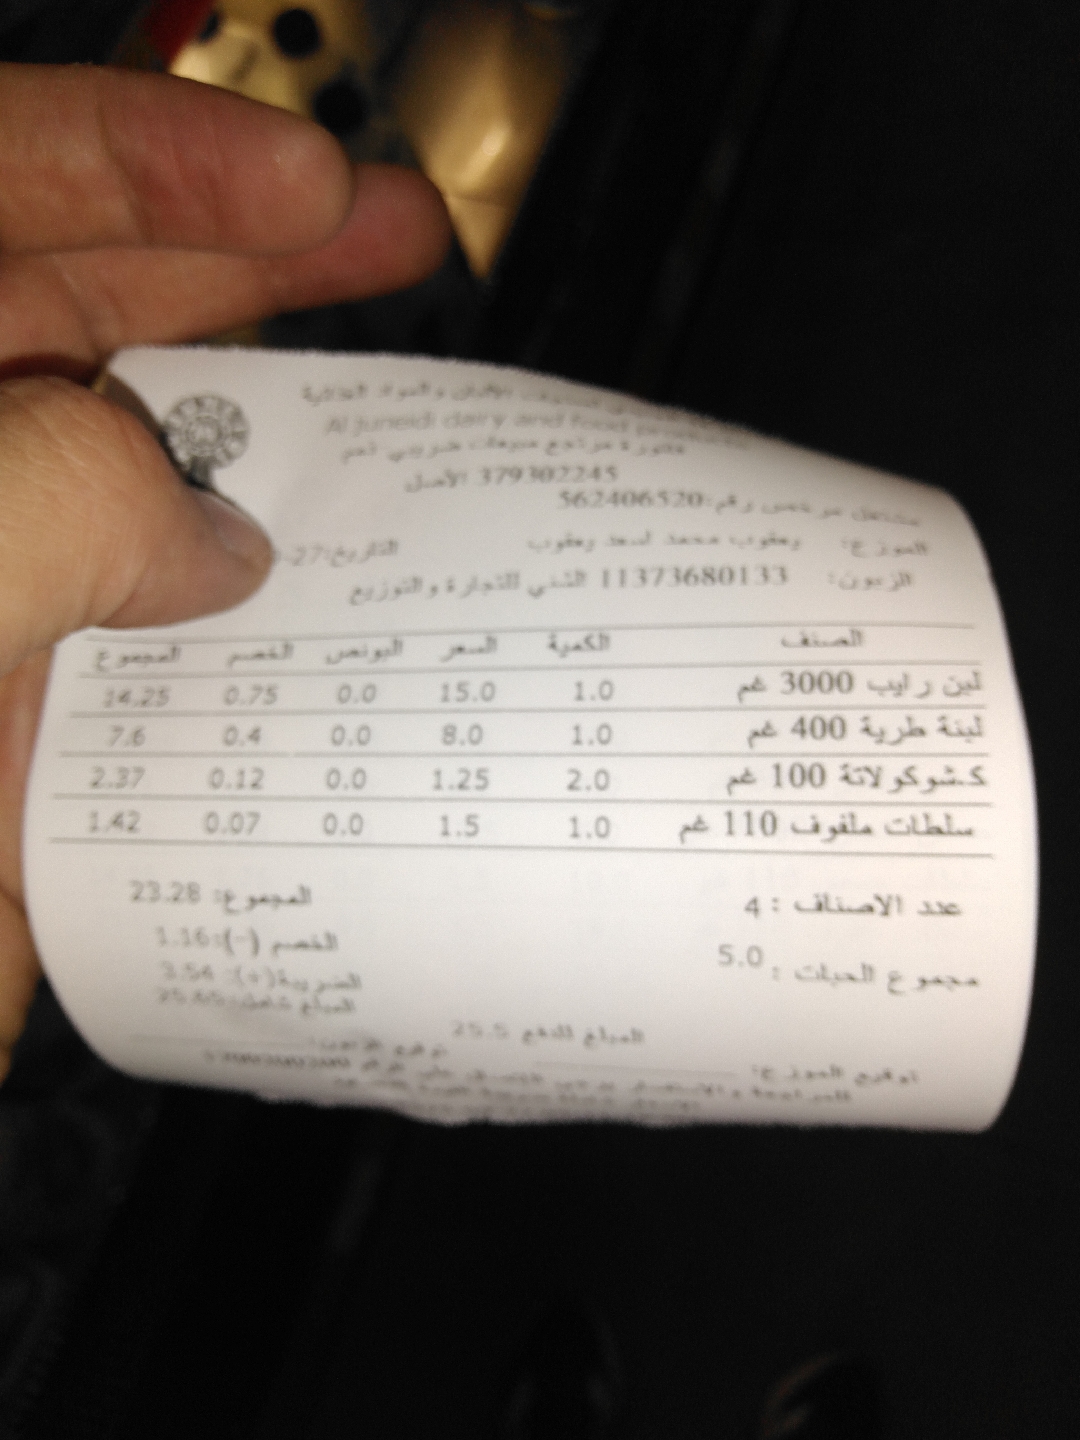 والمواد الغذائية
Al juneidi dairy and food
فاتورة مرتجع مبيعات ضريبي
379302245 الأصل
مشتغل مرخص رقم:562406520
الموزع: يعقوب محمد اسعد يعقوب
التاريخ:27-
الزبون: 11373680133 للتجارة والتوزيع
الصنف الكمية السعر البونص الخصم المجموع
لبن رايب 3000 غم 1.0 15.0 0.0 0.75 14.25
لبنة طرية 400 غم 1.0 8.0 0.0 0.4 7.6
ك.شوكولاتة 100 غم 2.0 1.25 0.0 0.12 2.37
سلطات ملفوف 110 غم 1.0 1.5 0.0 0.07 1.42
عدد الاصناف : 4
المجموع: 23.28
مجموع الحبات : 5.0
الخصم (-):1.16
الضريبة(+): 3.54
المبلغ شامل:
المبلغ للدفع 25.5
توقيع الزبون:
توقيع الموزع: